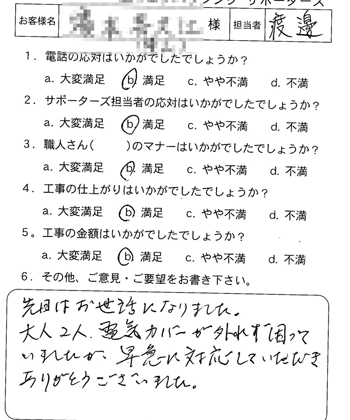 お客様名 様 担当者 渡邊
1．電話の応対はいかがでしたでしょうか？
a. 大変満足 b. 満足 c. やや不満 d. 不満
2．サポーターズ担当者の応対はいかがでしたでしょうか？
a. 大変満足 b. 満足 c. やや不満 d. 不満
3．職人さん(　　　)のマナーはいかがでしたでしょうか？
a. 大変満足 b. 満足 c. やや不満 d. 不満
4．工事の仕上がりはいかがでしたでしょうか？
a. 大変満足 b. 満足 c. やや不満 d. 不満
5。工事の金額はいかがでしたでしょうか？
a. 大変満足 b. 満足 c. やや不満 d. 不満
6．その他、ご意見・ご要望をお書き下さい。
先日はお世話になりました。
大人2人、電気カバーが外れず困って
いましたが、早急に対応していただき
ありがとうございました。